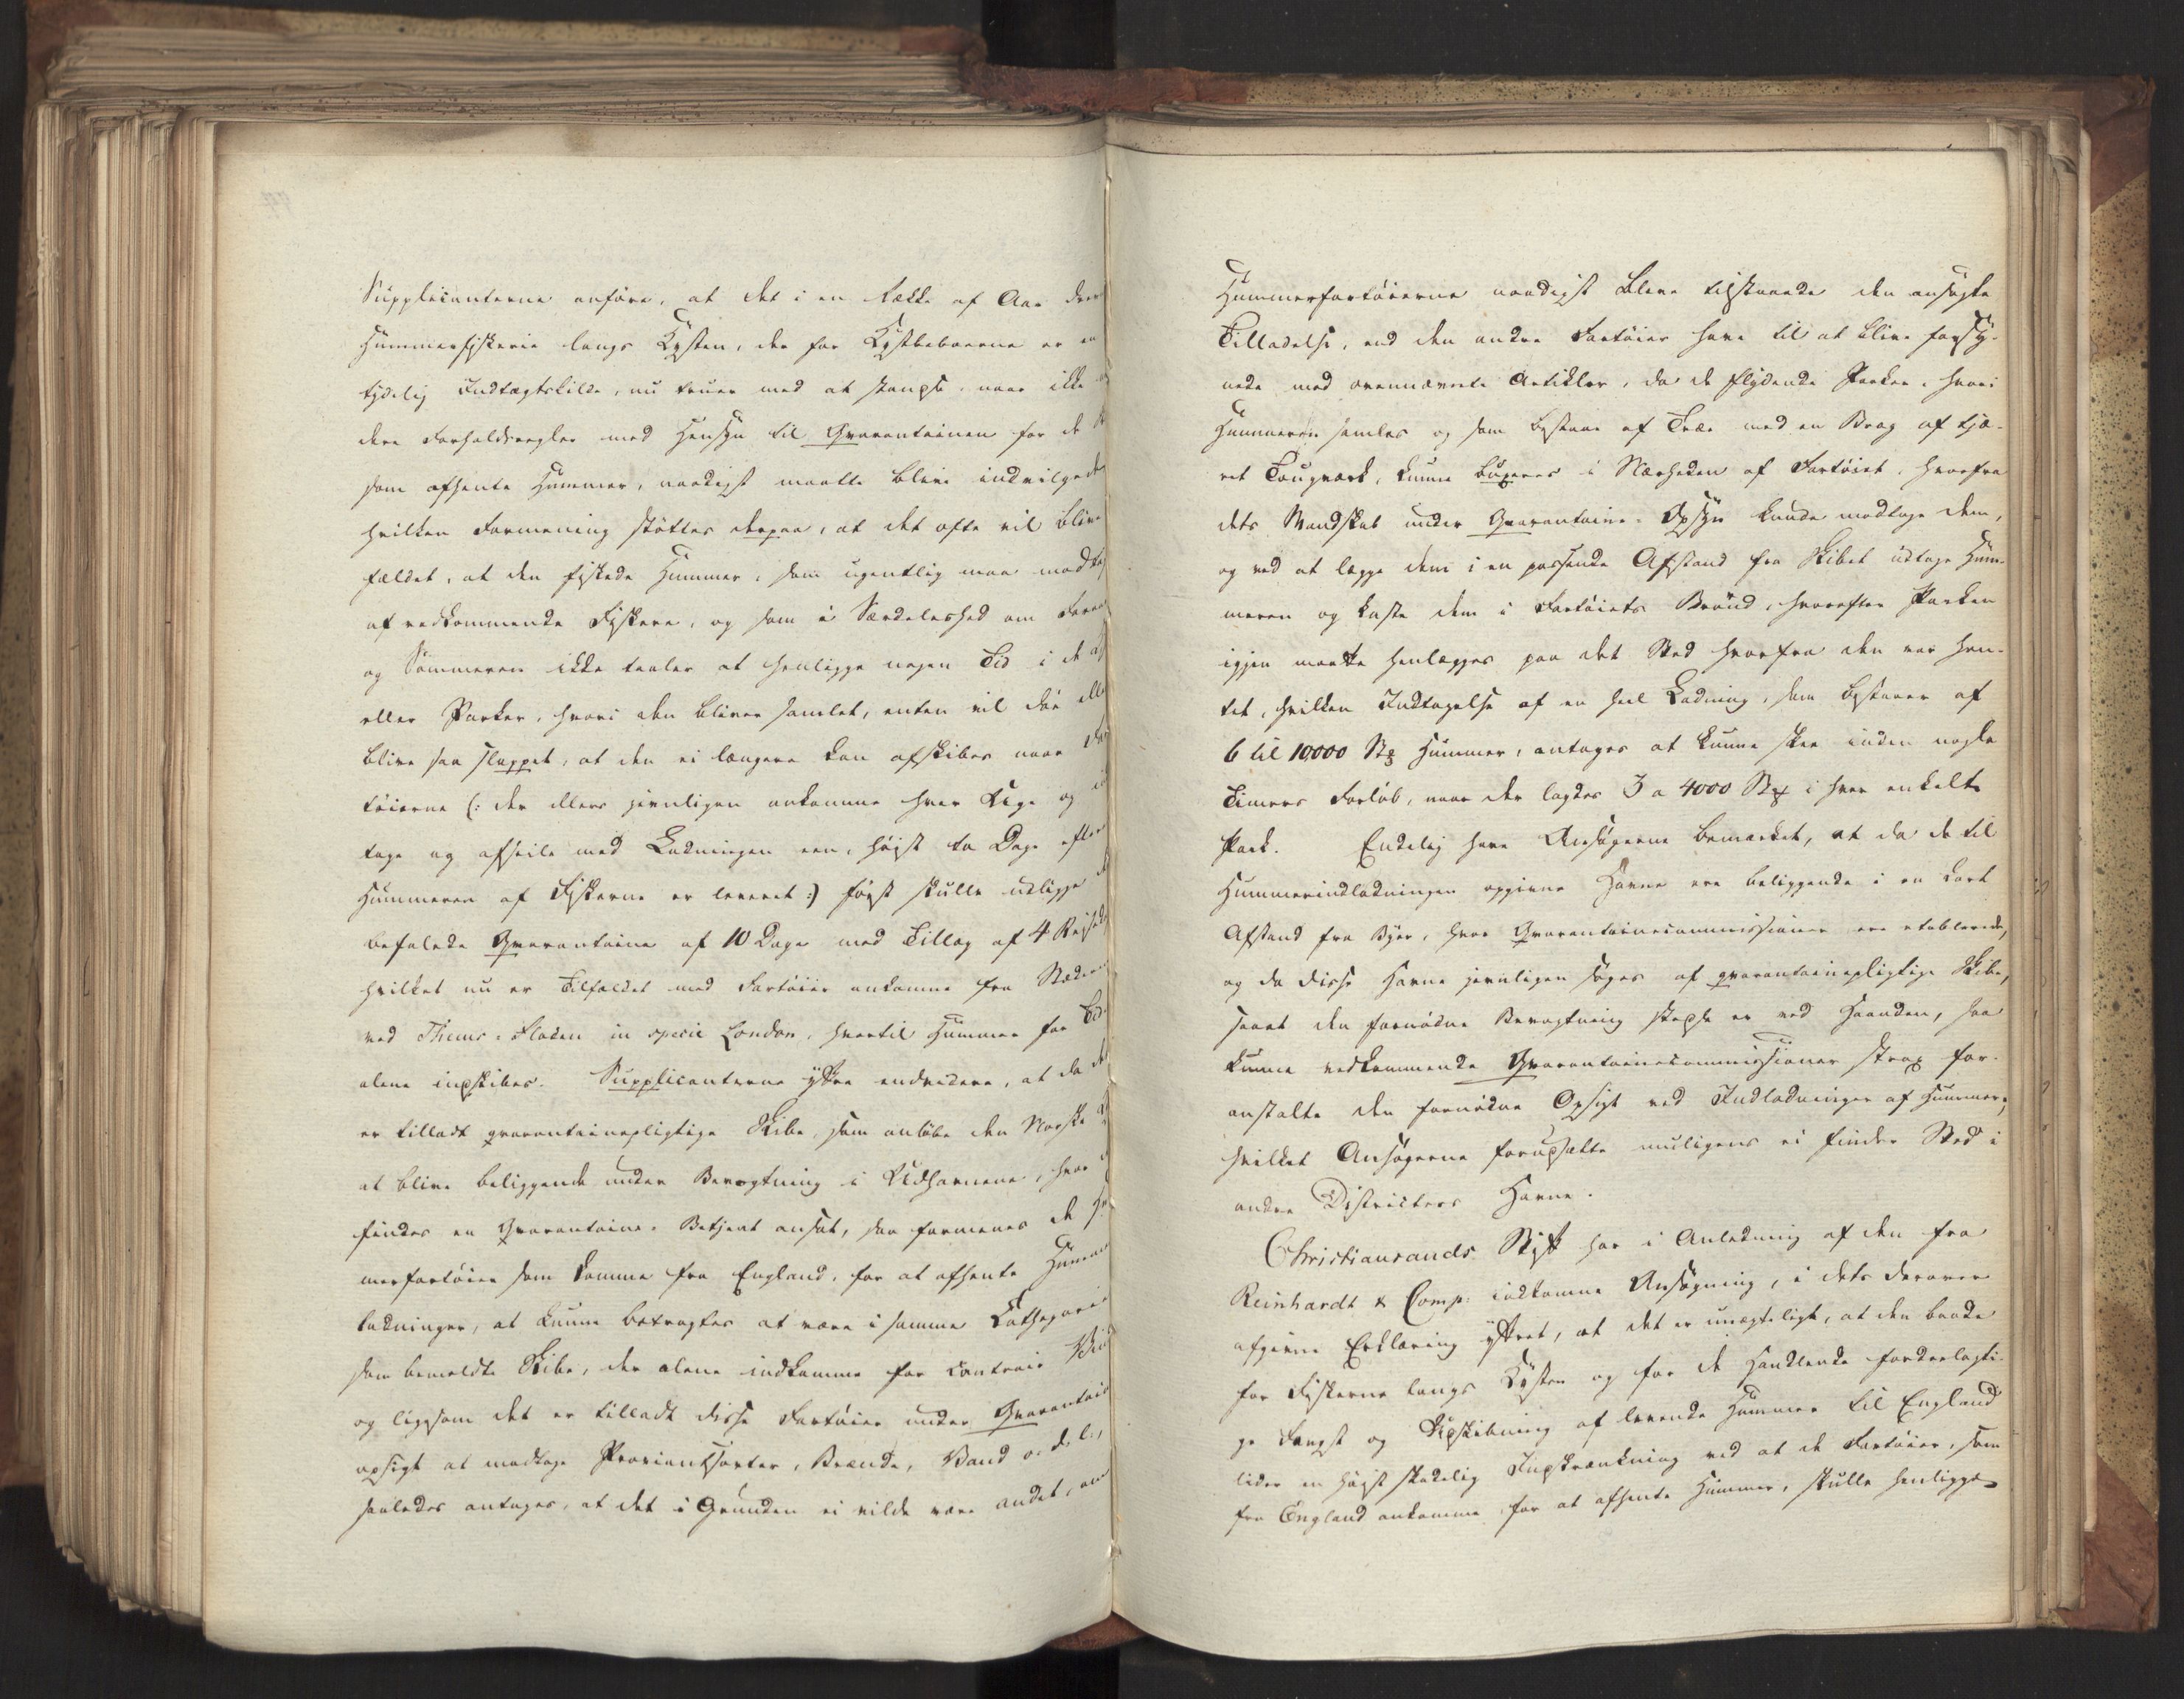 Supplicanterne anføre, at det i en Række af Aar drevne
Hummerfiskerie langs Kysten, der for Kystbeboerne er en
tydelig Indtægtskilde, nu truer med at standse, naar ikke
dere Forholdsregler med Hensyn til Qvarantainen for de
som afhente Hummer, naadigst maatte blive indvilgede
hvilken Formening støttes derpaa, at det ofte vil blive
fældet, at den fiskede Hummer, som ugentlig maa modtag
af vedkommende Fiskere, og som i Særdeleshed om Foraar
og Sommeren ikke taaler at henligge nogen Tid i de
eller Parker, hvori den bliver samlet, enten vil døe eller
blive saa slappet, at den ei længere kan afskibes naar Far
tøierne (: der ellers jevnligen ankomme hver Uge og
tage og afseile med Ladningen een, høist to Dage efter
Hummeren af Fiskerne er leveret :) først skulle udligge
befalede Qvarantaine af 10 Dage med Tillæg af 4 Reisedag
hvilket nu er Tilfældet med Fartøier ankomne fra Stæder
ved Thems-Floden in specie London, hvortil Hummer for Tid
alene udskibes. Supplicanterne yttre endvidere, at da det
er tilladt qvarantainepligtige Skibe, som anløbe den Norske
at blive beliggende under Bevogtning i Udhavnene, hvor
findes en Qvarantaine-Betjent ansat, saa formenes de Hu
merfartøier som komme fra England, for at afhente Hummer
ladninger, at kunne betragtes at være i samme Cathegorie
som bemeldte Skibe, der alene indkomme for contraie Vind
og ligesom det er tilladt disse Fartøier under Qvarantaine
opsigt at modtage Proviantsorter, Brænde, Vand o. d. l.,
saaledes antages, at det i Grunden ei vilde være andet, om
Hummerfartøierne naadigst bleve tilstaaede den ansøgte
Tilladelse, end den andre Fartøier have til at blive forsy-
nede med ovennævnte Artikler, da de flydende Parker, hvori
Hummeren samles og som bestaae af Træe med en Brog af tjæ-
ret Tougværk, kunne buxeres i Nærheden af Fartøiet, hvorfra
dets Mandskab under Qvarantaine-Opsyn kunde modtage dem,
og ved at lægge dem i en passende Afstand fra Skibet udtage Hum-
meren og kaste dem i Fartøiets Brønd, hvorefter Parken
igjen maatte henlægges paa det Sted hvorfra den var hen-
tet, hvilken Indtagelse af en heel Ladning, som bestaaer af
6 til 10,000 Stk Hummer, antages at kunne skee inden nogle
Timers Forløb, naar der lagdes 3 a 4000 Stk i hver enkelt
Park. Endelig have Ansøgerne bemærket, at da de til
Hummerindladningen opgivne Havne ere beliggende i en kort
Afstand fra Byer, hvor Qvarantainecommissioner ere etablerede,
og da disse Havne jevnligen søges af qvarantainepligtige Skibe,
saavel den fornødne Bevogtning stedse er ved Haanden, saa
kunne vedkommende Qvarantainecommissioner strax for-
anstalte den fornødne Opsigt ved Indladninger af Hummer,
hvilket Ansøgerne forudsætte muligens ei finder Sted i
andre Districters Havne.
Christiansands Stift har i Anledning af den fra
Reinhardt & Comp: indkomne Ansøgning, i dets derover
afgivne Erklæring yttret, at det er unægteligt, at den baade
for Fiskerne langs Kysten og for de Handlende fordeelagti-
ge Fangst og Udskibning af levende Hummer til England
lider en høist skadelig Indskrænkning ved at de Fartøier, som
fra England ankomme for at afhente Hummer, skulle henligge